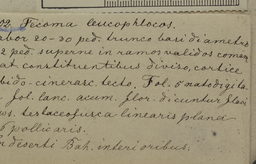 02. Tecoma leucophloeos.
rbor 20-30 ped. trunco basi diametro
2 ped. superne in ramos validos comam
at constituentibus diviso, cortice
bido-cinerasc. tecto. Fol. 5 nato digita
fol. lanc. acum. flor. dicuntur flavi
testaceo fusca linearis plana
pollicaris.
deserti Bah. interioribus.